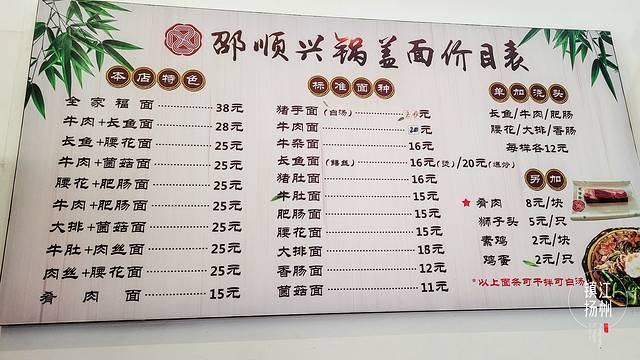 邵顺兴锅盖面价目表
本店特色
全家福面 38元
牛肉+长鱼面 28元
长鱼+腰花面 25元
牛肉+菌菇面 25元
腰花+肥肠面 25元
牛肉+肥肠面 25元
大排+菌菇面 25元
牛肚+肉丝面 25元
肉丝+腰花面 25元
肴肉面 15元
标准面种
猪手面(白汤) 元
牛肉面 20元
牛杂面 16元
长鱼面(鳝丝) 16元(烫)/20元(爆炒)
猪肚面 16元
牛肚面 15元
肥肠面 15元
腰花面 15元
大排面 18元
香肠面 12元
菌菇面 11元
单加浇头
长鱼/牛肉/肥肠
腰花/大排/香肠
每样各12元
另加
★ 肴肉 8元/块
狮子头 5元/只
素鸡 2元/块
鸡蛋 2元/只
*以上面条可干拌可白汤
镇江
扬州